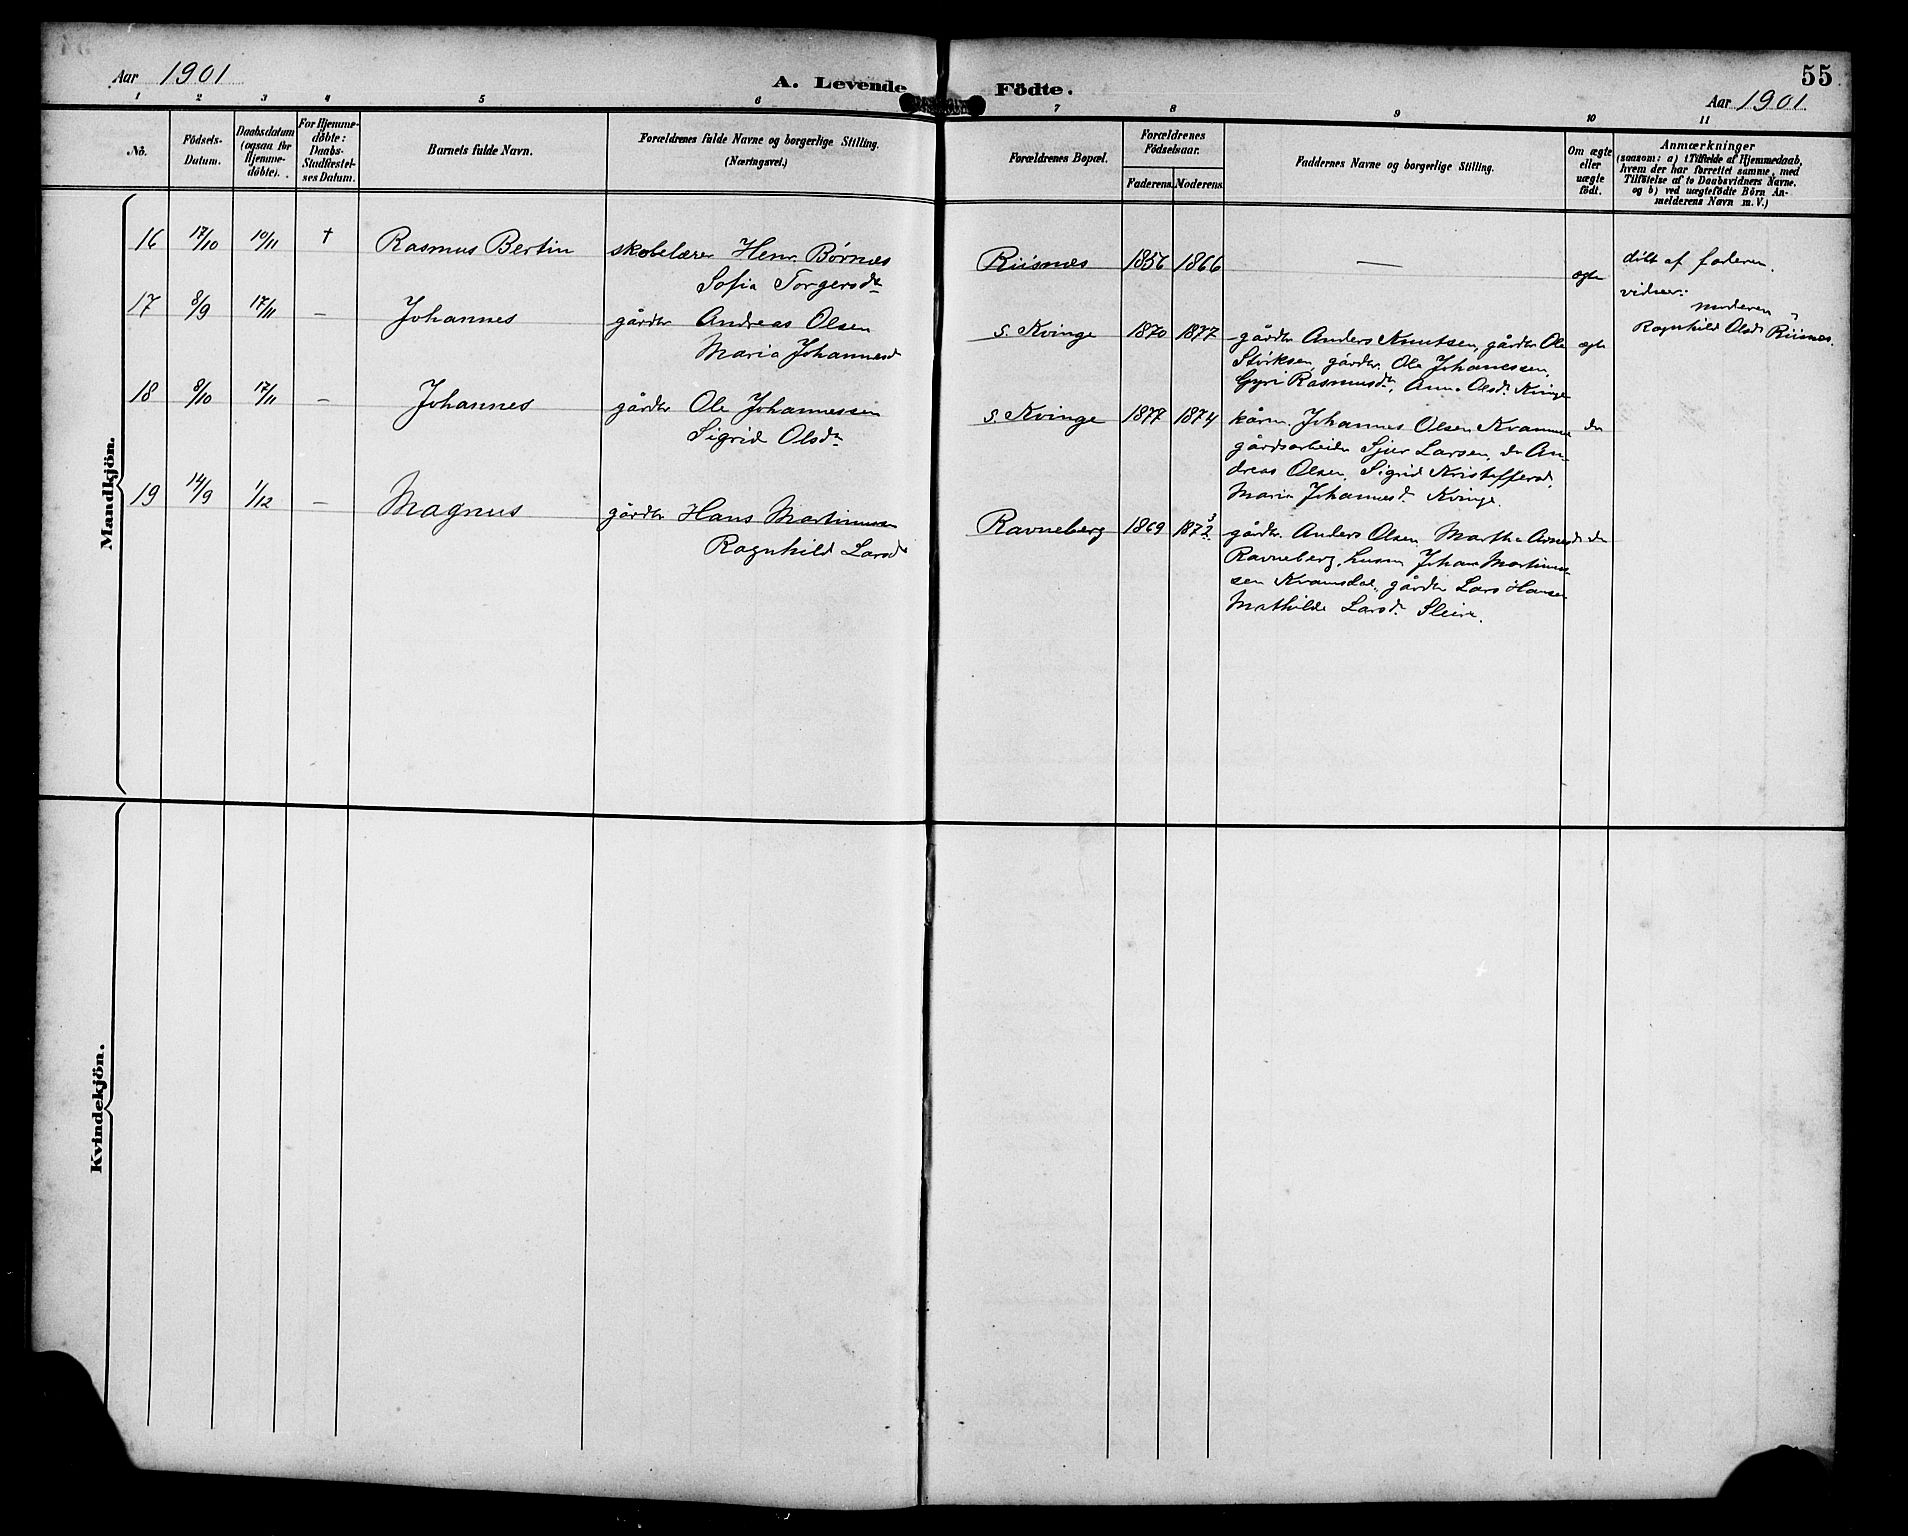 Aar 1901
A. Levende Födte.
55
Aar 1901
1 2 3 4 5 6 7 8 9 10 11
No.
Födsels-
Datum.
Daabsdatum
(ogsaa for
Hjemme-
døbte).
For Hjemme-
døbte:
Daabs-
Stadfæstel-
ses Datum.
Barnets fulde Navn.
Forældrenes fulde Navne og borgerlige Stilling.
(Næringsvei.)
Forældrenes Bopæl.
Forældrenes
Födselsaar.
Faderens. Moderens.
Faddernes Navne og borgerlige Stilling.
Om ægte
eller
uægte
födt.
Anmærkninger
(saasom: a) i Tilfælde af Hjemmedaab,
hvem der har forrettet samme, med
Tilföielse af to Daabsvidners Navne,
og b) ved uægtefödte Börn An-
melderens Navn m. V.)
Mandkjön.
16 17/10 10/11 † Rasmus Bertin skolelærer Henr. Børnes
Sofia Torgersdtr
Riisnes 1856 1866 — ægte
døbt af faderen.
vidner:
moderen
Ragnhild Olsdtr Riisnes.
17 8/9 17/11 – Johannes gårdbr Andreas Olsen
Maria Johannesd
s. Kvinge 1870 1877 gårdbr Anders Knutsen, gårdbr Ole ægte
Störksen, gårdbr. Ole Johannessen,
Gyri Rasmusdtr, Anna Olsdtr Kvinge
18 8/10 17/11 – Johannes gårdbr Ole Johannessen
Sigrid Olsdtr
s. Kvinge 1877 1874 kårm. Johannes Olsen Kvamme do
gårdsarbeider Sjur Larsen, do An-
dreas Olsen, Sigrid Kristoffersd,
Maria Johannesd. Kvinge.
19 14/9 1/12 – Magnus gårdbr Hans Martinussen
Ragnhild Larsdtr
Ravneberg 1869 1873/2 gårdbr. Anders Olsen, Martha Arnesdtr do
Ravneberg, husm Johan Martinus-
sen Kvamsdal, gårdbr Lars Hansen
Mathilde Larsdtr. Sleire.
Kvindekjön.